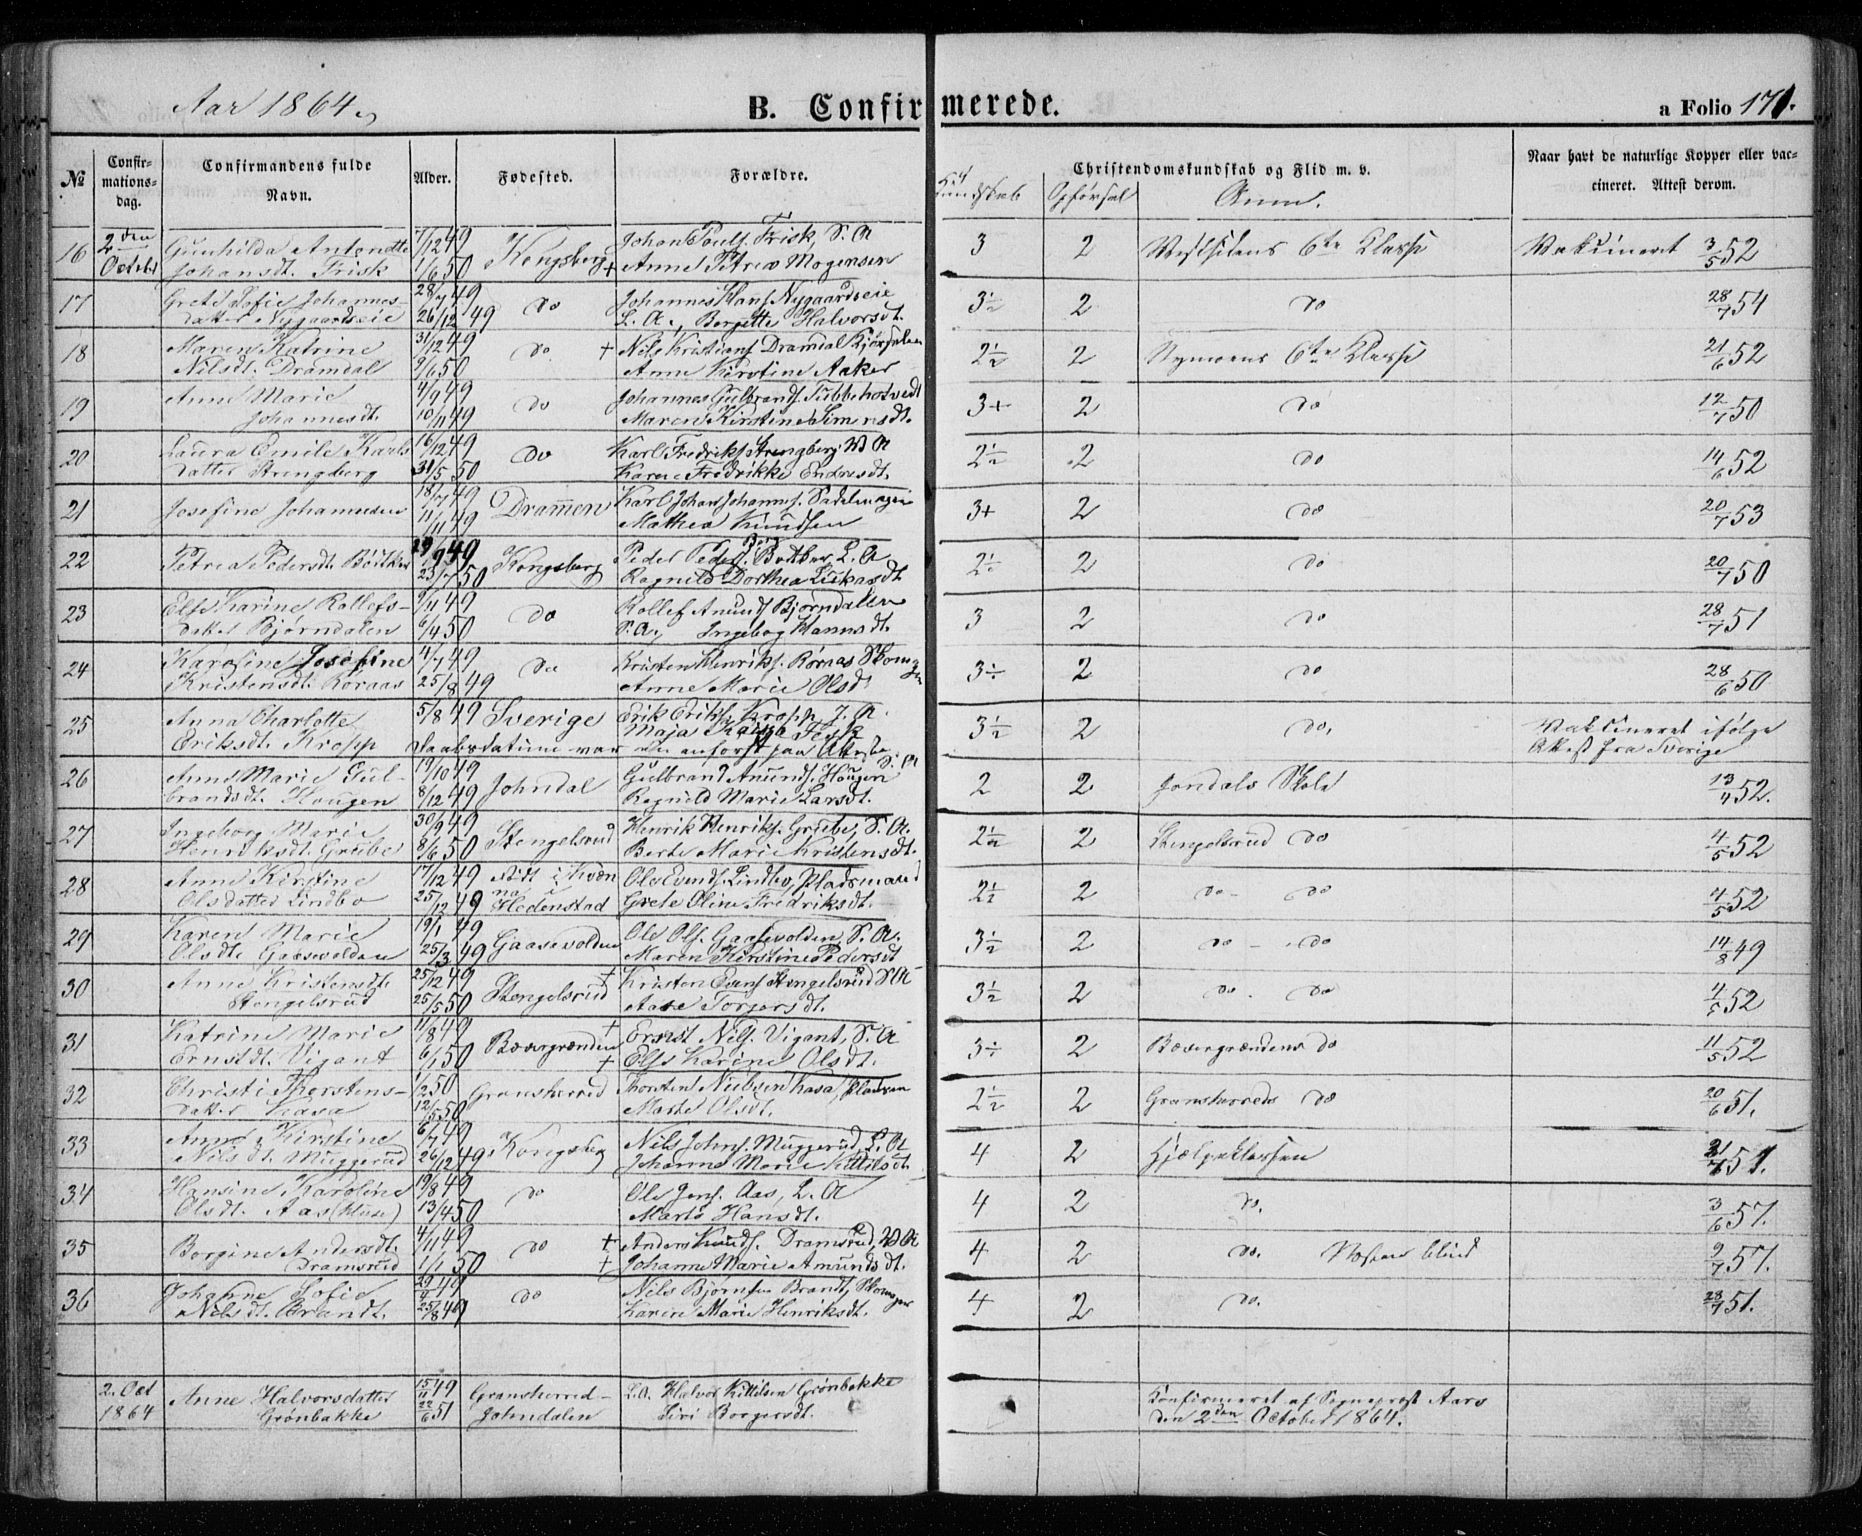 Aar 1864.
B. Confirmerede.
a Folio 171.
№
Confirmationsdag.
Confirmandens fulde Navn.
Alder.
Fødested.
Forældre.
Christendomskundskab og Flid m. v.
Kundskab Opførsel Anm.
Naar havt de naturlige Kopper eller vaccineret. Attest derom.
16 2den Octobr Gunhilda Antonette 7/12 49 Kongsberg Johan Pauls. Frisk, S. A 3 2 Vestsidens 6te Klasse Vaksineret 3/5 52
Johansdt. Frisk 1/6 50 + Anne Petrea Mogensen
17 Grete Sofie Johannes- 28/7 49 do Johannes Hans. Nygaardseie 3½ 2 do 28/7 54
datter Nygaardseie 26/12 49 L. A., Borgette Halvorsdt.
18 Maren Katrine 31/12 49 do + Nils Kristians. Dramdal 2½ 2 Nymoens 6te Klasse 21/6 52
Nilsdt. Dramdal 9/6 50 Anne Kirstine Aaker
19 Anne Marie 4/9 49 do Johannes Gulbrands. Tubbehotvedt 3+ 2 do 12/7 50
Johannesdt. 10/11 49 Maren Kirstine Simensdt.
20 Laura Emile Karls 16/12 49 do Karl Fredriks. Strengberg 2½ 2 do 14/6 52
datter Strengberg 31/5 50 Karen Fredrikke Endresdt.
21 Josefine Johannesen 18/7 49 Drammen Karl Johan Johanness. Sadelmager 3+ 2 do 20/7 53
11/11 49 Mathea Knudsen
22 Petrea Pedersdt. Kongsberg Peder Peders. L. A 2½ 2 do 20/7 50
23/7 50 Ragnild Dorthea Lukasdt
23 Else Karine Rollefs- 9/11 49 do Rollef Anunds. Bjørndalen 3 2 do 28/7 51
datter Bjørndalen 6/4 50 S. A, Ingebog Hansdt.
24 Karoline Josefine 4/7 49 do Kristen Henriks. Roraas Skomager 3÷ 2 do 28/6 50
Kristensdt. Roraas 25/8 49 Anne Marie Olsdt
25 Anna Charlotte 5/8 49 Sverige Erik Eriks. Kropp, J. A. 3½ 2 do. Vaksineret ifølge
Eriksdt. Kropp Daabsdatum var ei anført paa Attesten Attest fra Sverige
26 Anne Marie Gul- 19/10 49 Johndal Gulbrand Anunds. Hougen S. A 2 2 Jondals Skole 13/4 52.
brandsdt. Hougen 8/12 49 Ragnild Marie Larsdt.
27 Ingeborg Marie 30/9 49 Stengelsrud Henrik Henriks. Grube, S. A. 2½ 2 Stengelsrud do 4/5 52
Henriksdt. Grube 8/6 50 Berte Marie Kristensdt.
28 Anne Kirstine 17/12 49 Født i Ole Evends. Lindbo, Pladsmand 2½ 2 do do 4/5 52
Olsdatter Lindbo 25/12 49 Hedenstad Grete Oline Fredriksdt.
29 Karen Marie 19/1 49 Gaasevolden Ole Ols. Gaasevolden, S. A. 3½ 2 do do 14/8 49
Olsdt. Gaasevolden 25/3 49 Maren Kirstine Pedersdt
30 Anne Kristensdt. 25/12 49 Stengelsrud + Kristen Evens. Stengelsrud S A 3½ 2 do do 4/5 52
Stengelsrud 25/5 50 Aase Torgersdt.
31 Katrine Marie 11/8 49 Bævergrænden + Ernst Nils. Vigant, S. A 3÷ 2 Bævergrændens do 11/5 52
Ernstdt. Vigant 6/1 50 + Else Karine Olsdt.
32 Christi Thorstens- 1/2 50 Gransherred Thorsten Nielsen Kasa, Pladsm 2½ 2 Gransherreds do 20/6 51.
datter Kasa 12/5 50 Marte Olsdt.
33 Anne Kirstine 6/7 49 Kongsbg Nils Johns. Muggerud, L. A 4 2 Hjælpeklassen
Nilsdt. Muggerud 26/12 49 Johanne Marie Kittilsdt.
34 Hansine Karoline 19/8 49 do Ole Jens. Aas, L. A 4 2 do. 3/6 57.
Olsdt. Aas 13/4 50 Marte Hansdt.
35 Borgine Andersdt. 4/11 49 do + Anders Knuds. Dramsrud, 4 2 do. Næsten blind 9/7 57.
Dramsrud 1/1 50 + Johanne Marie Amundsdt.
36 Johanne Sofie do Nils Bjørnsen Brandt, Skomager 4 2 do. 28/7 51.
Nilsdt. Brandt. 25/8 49 Karen Marie Henriksdt.
2. Oct 1864 Anne Halvorsdatter 15/11 49 Gransherred- S. A. Halvor Kittilsen Grønbakke Konfirmeret af Sogneprest Aars
Grønbakke 22/6 51 Johndalen Siri Borgersdt. den 2den October 1864.